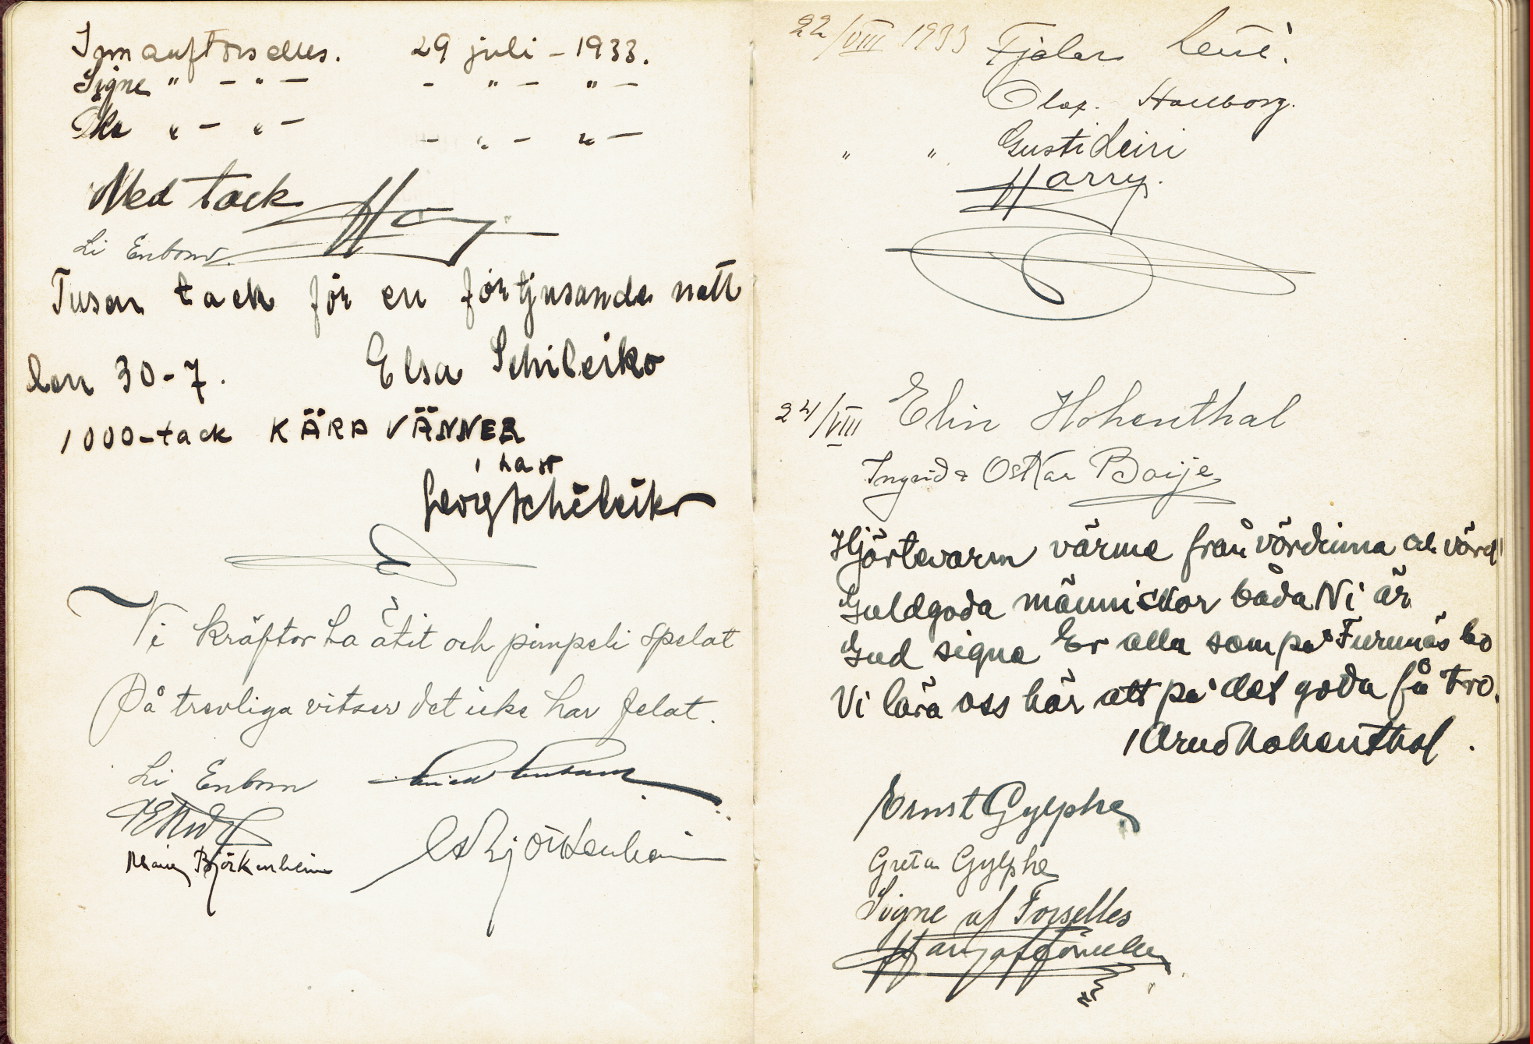 Irma af Forselles. 29 juli - 1933.
Signe " - " - - " - " -
" - " - - " - " -
Med tack Harry
Li Enbom.
Tusen tack för en förtjusande natt
den 30-7. Elsa Schileiko
1000-tack KÄRA VÄNNER
i hast
Georg Schileiko
Vi kräftor ha ätit och pimpeli spelat
På trevliga vitser det icke har felat.
Li Enbom
Björkenheim
Björkenheim
22/VIII 1933 Fjalar
Olof. Hallborg.
" " Gusti
Harry.
24/VIII Elin Hohenthal
Ingrid & Oskar Boije
Hjärtevarm värme från värdinna och värd
Guldgoda människor båda Ni är
Gud signe Er alla som på Furunäs bo
Vi lära oss här att på det goda få tro.
Arvid Hohenthal.
Ernst Gylphe
Greta Gylphe
Signe af Forselles
Harry af Forselles